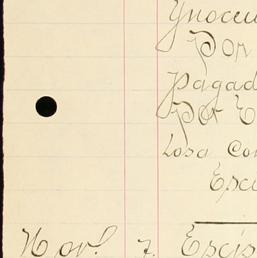 Ynocen
Por
Pagad
Por C
Losa Con
Esci
Nov! 7 Escis